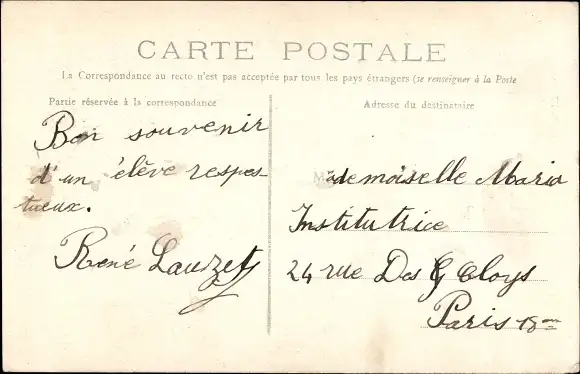 CARTE POSTALE
La Correspondance au recto n'est pas acceptée par tous les pays étrangers (se renseigner à la Poste
Partie réservée à la correspondance
Adresse du destinataire
Bon souvenir
d'un élève respec-
tueux.
René Lauzet
Mademoiselle Maria
Institutrice
24 rue Des Cloys
Paris 18me